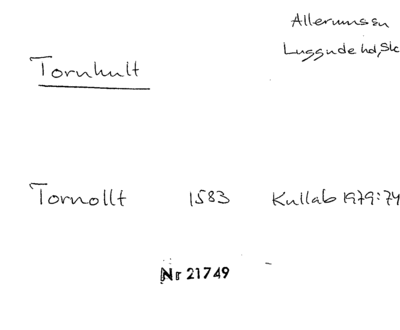 Allerums sn
Luggude hd, Sk
Tornhult
Tornollt 1583 Kullab 1979:74
Nr 21749